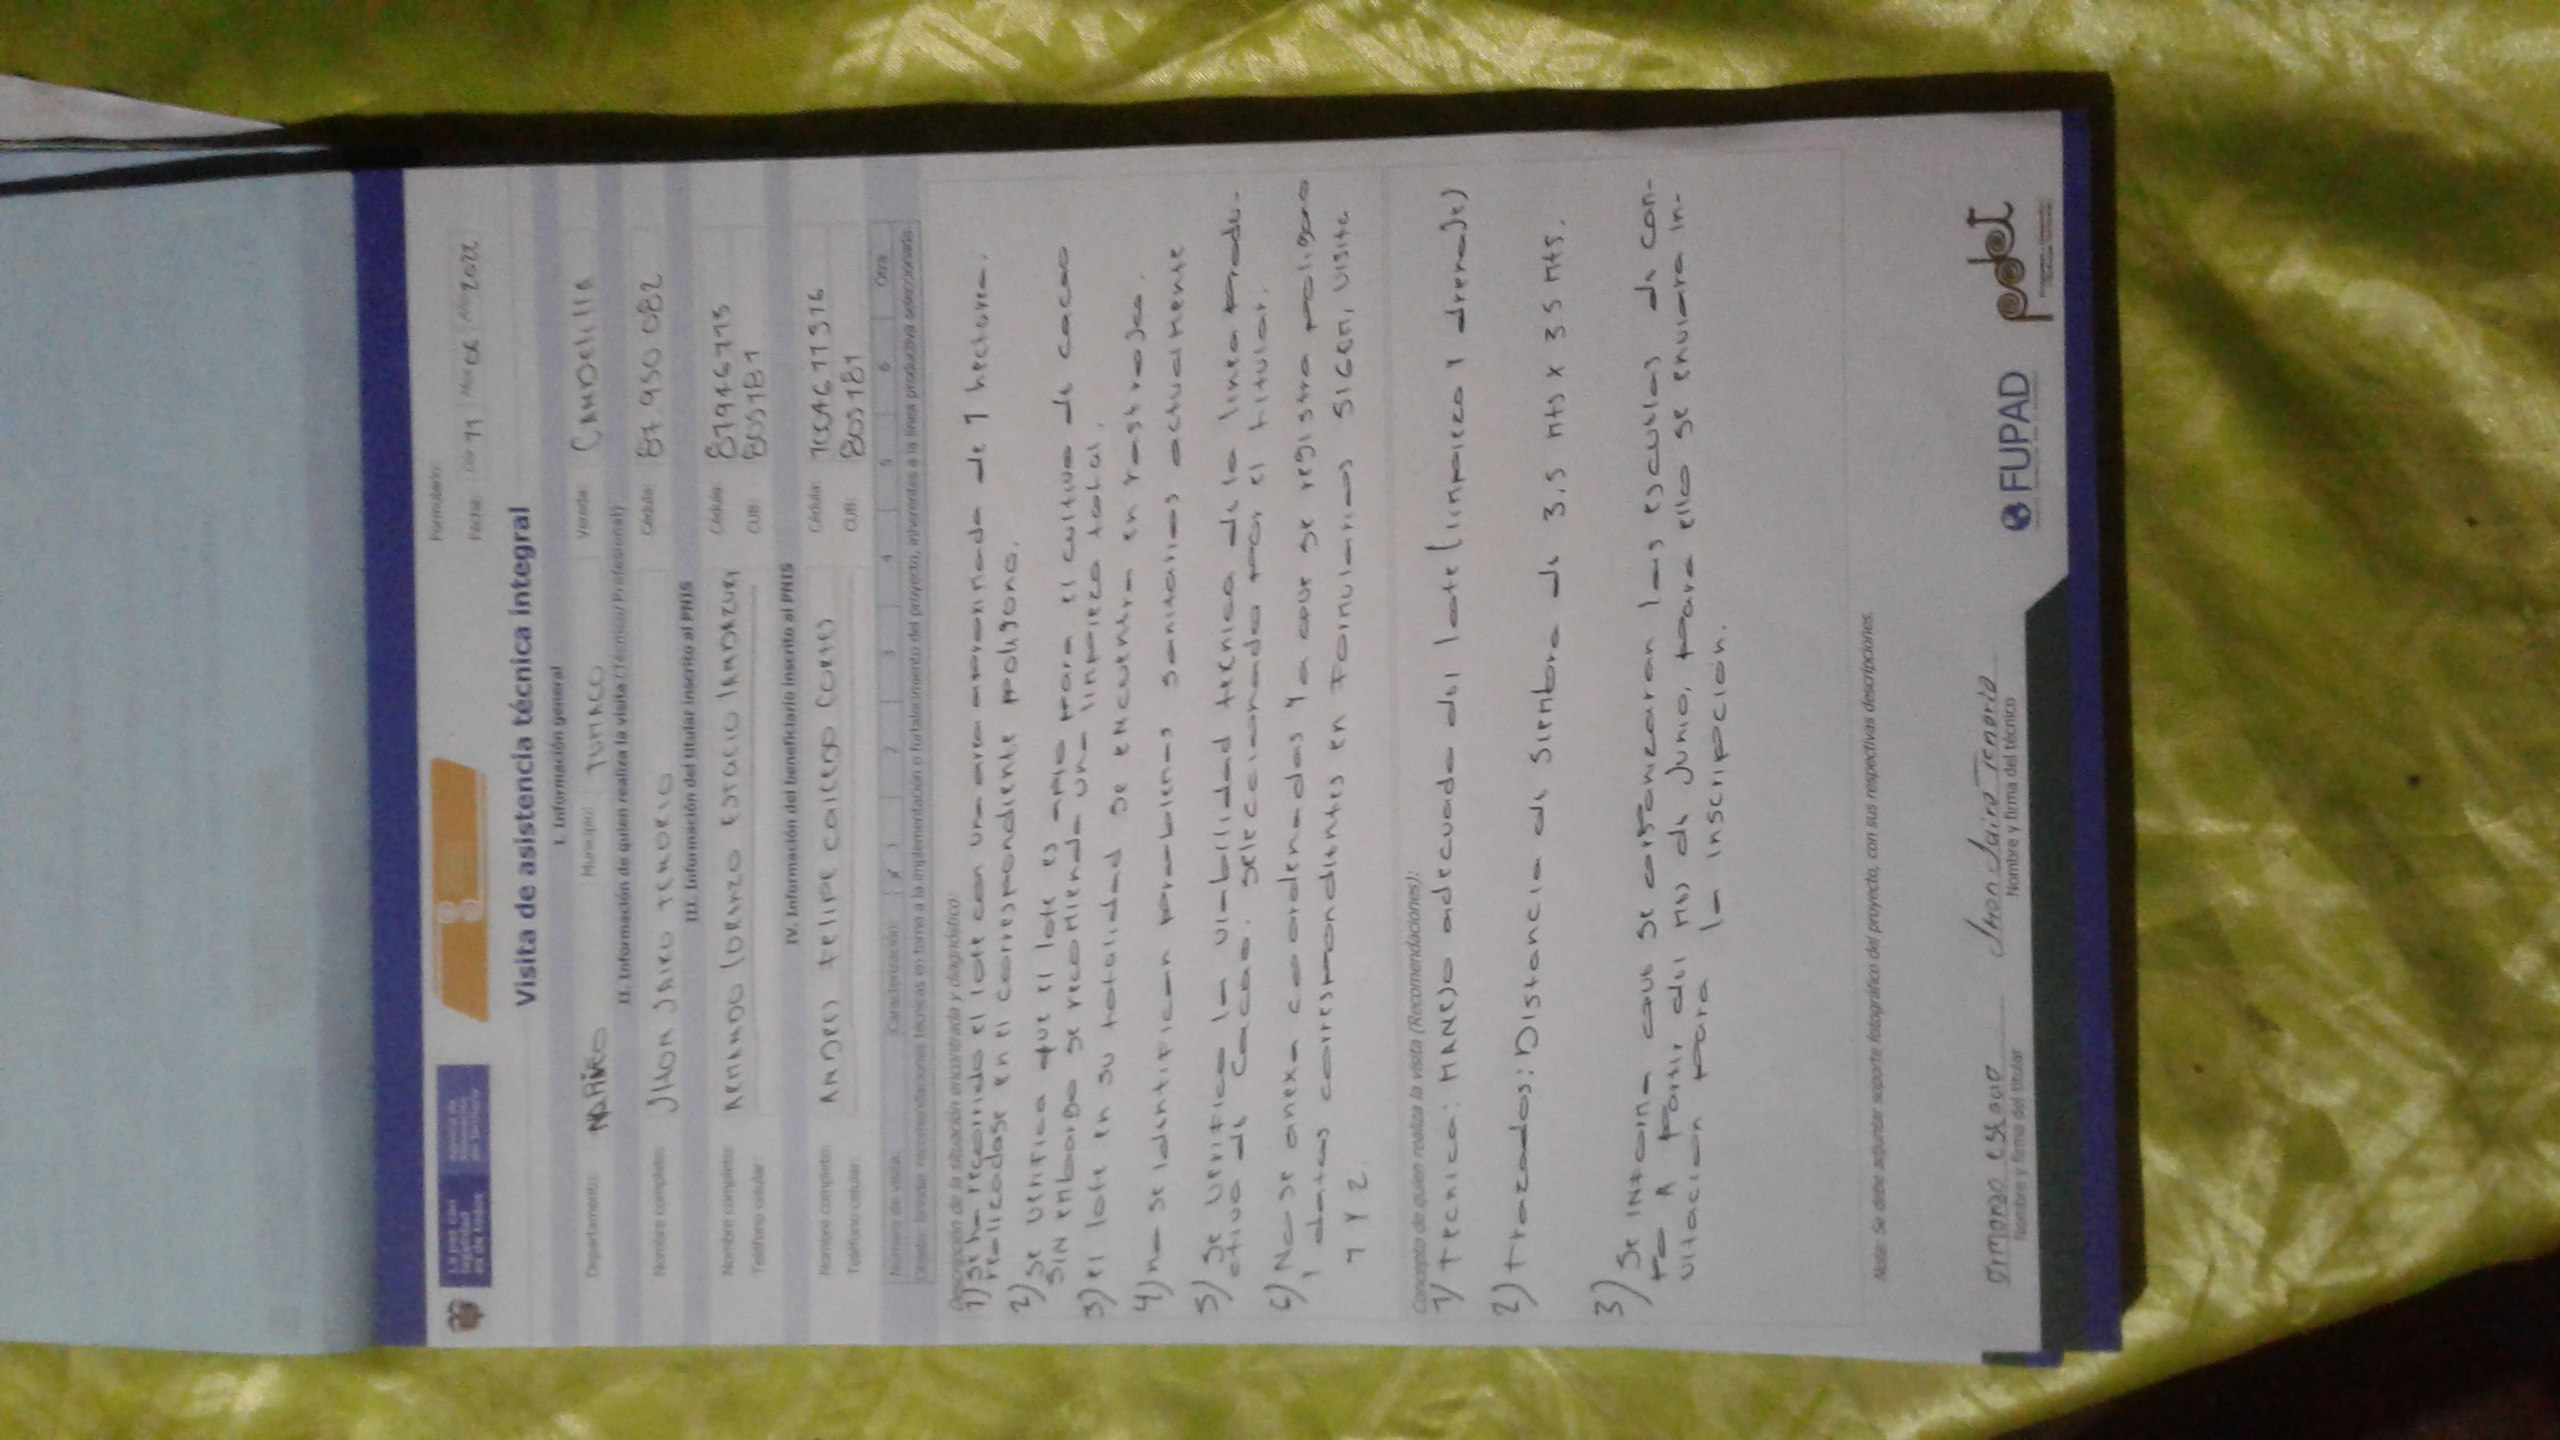 La paz con legalidad es de todos
Formulario:
Fecha: Día 11 Mes 06 Año 2022
Visita de asistencia técnica integral
I. Información general
Departamento: NARIÑO Municipio: TUMACO Vereda: CANDELILLA
II. Información de quien realiza la visita (Técnico/ Profesional)
Nombre completo: JHON JAIRO TENORIO Cédula: 87.950 082
III. Información del titular inscrito al PNIS
Nombre completo: ARMANDO LORENZO ESTACIO LANDAZURI Cédula: 87946773
Teléfono celular: CUB: 805181
IV. Información del beneficiario inscrito al PNIS
Nombre completo: ANDRES FELIPE CAICEDO CORTES Cédula:
Teléfono celular: CUB: 805181
Número de visita: Caracterización: X 1 2 3 4 5 6 Otra
Objeto: brindar recomendaciones técnicas en torno a la implementación o fortalecimiento del proyecto, inherentes a la línea productiva seleccionada
Descripción de la situación encontrada y diagnóstico:
1) Se ha recorrido el lote con un area aproximada de 1 hectarea.
realizadose en el correspondiente poligono.
2) Se verifica que el lote es apto para el cultivo de cacao
SIN embargo se recomienda una limpieza total.
3) el lote en su totalidad se encuentra en rastrojo.
4) no se identifican problemas sanitarios actualmente
5) Se verifica la viabilidad tecnica de la linea produ-
ctiva de Cacao. seleccionada por el titular.
6) No se anexa coordenadas ya que se registra poligono
y datos correspondientes en formularios SIGEM, visita
1 y 2.
Concepto de quien realiza la visita (Recomendaciones):
1) Tecnico: MANEJO adecuado del lote (limpieza y drenaje)
2) trazados: Distancia de Siembra de 3.5 mts x 3 5 mts.
3) Se INforma que se organizaran las escuelas de Cam-
po A partir del mes de Junio, para ello se enviara in-
vitacion para la inscripcion.
Nota: Se debe adjuntar soporte fotográfico del proyecto, con sus respectivas descripciones.
Armando estacio Jhon Jairo Tenorio
Nombre y firma del titular Nombre y firma del técnico
FUPAD
pdet